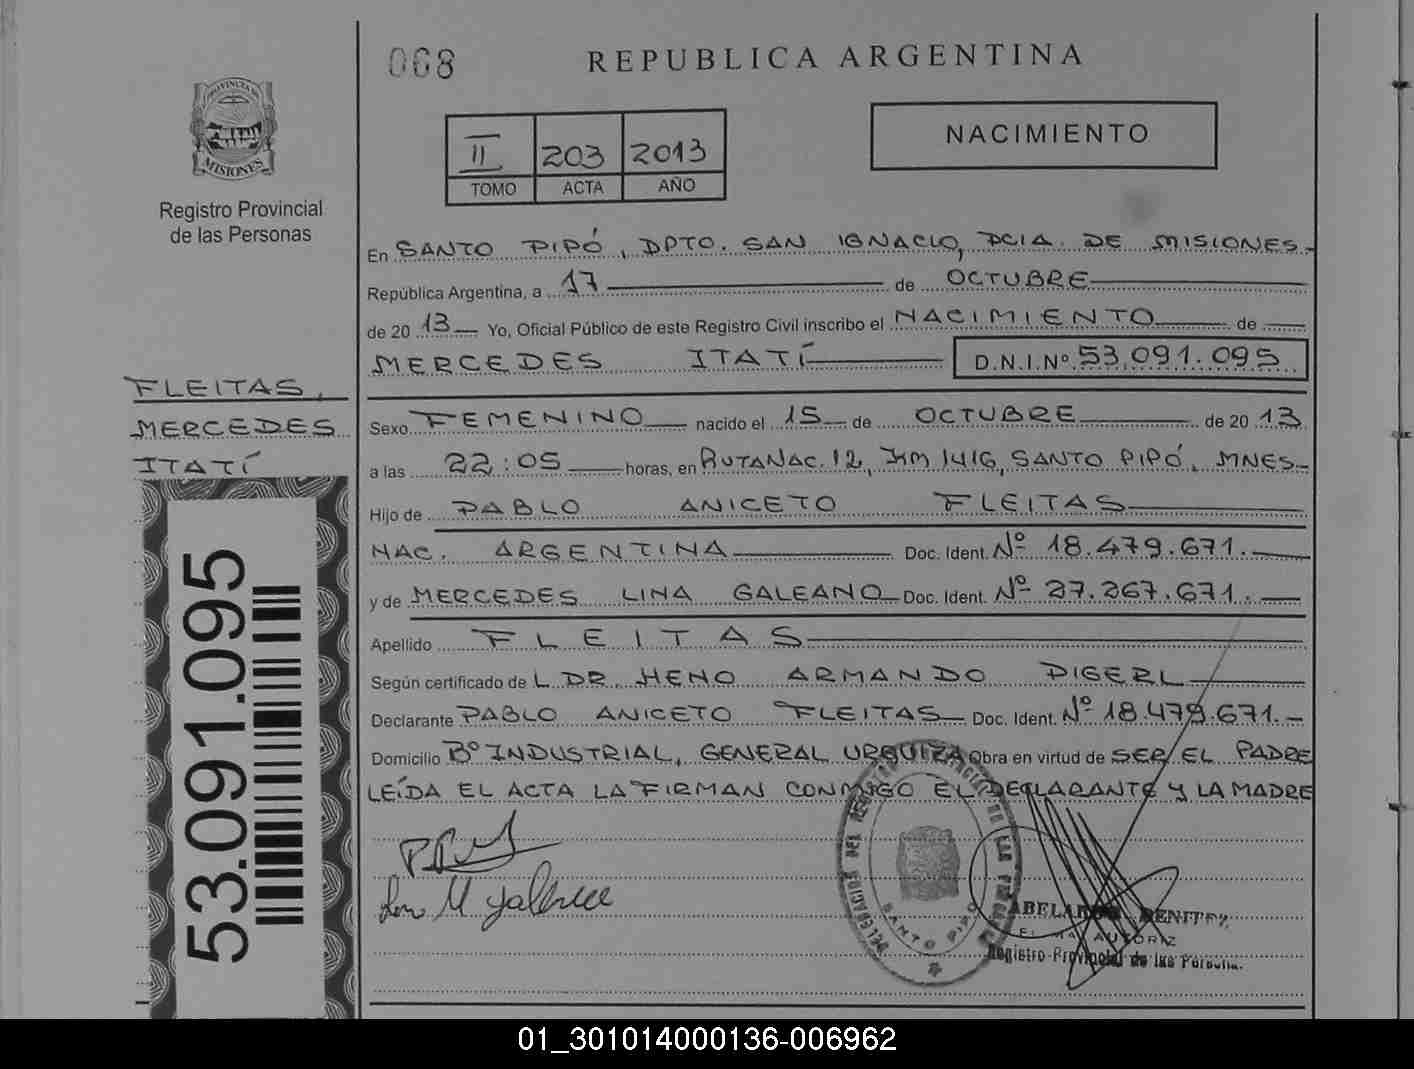 068
REPUBLICA ARGENTINA
PROVINCIA DE
MISIONES
Registro Provincial
de las Personas
II 203 2013
TOMO ACTA AÑO
NACIMIENTO
En SANTO PIPÓ, DPTO. SAN IGNACIO, PCIA. DE MISIONES.-
República Argentina, a 17 de OCTUBRE
de 2013 Yo, Oficial Público de este Registro Civil inscribo el NACIMIENTO de
MERCEDES ITATÍ D.N.I.Nº 53.091.095
FLEITAS,
MERCEDES
ITATÍ
Sexo FEMENINO nacido el 15 de OCTUBRE de 2013
a las 22:05 horas, en RUTA NAC. 12, KM 1416, SANTO PIPÓ, MNES-
Hijo de PABLO ANICETO FLEITAS
NAC. ARGENTINA Doc. Ident. Nº 18.479.671.
y de MERCEDES LINA GALEANO Doc. Ident. Nº 27.267.671.
Apellido FLEITAS
Según certificado de L DR. HENO ARMANDO DIGERL
Declarante PABLO ANICETO FLEITAS Doc. Ident. Nº 18.479.671.-
Domicilio Bº INDUSTRIAL, GENERAL URQUIZA Obra en virtud de SER EL PADRE
LEÍDA EL ACTA LA FIRMAN CONMIGO EL DECLARANTE Y LA MADRE
53.091.095
DELEGACION DEL REGISTRO PROVINCIAL DE LAS PERSONAS
SANTO PIPO
ABELARDO BENITEZ
AUTORIZ
Registro Provincial de las Persona.
01_301014000136-006962